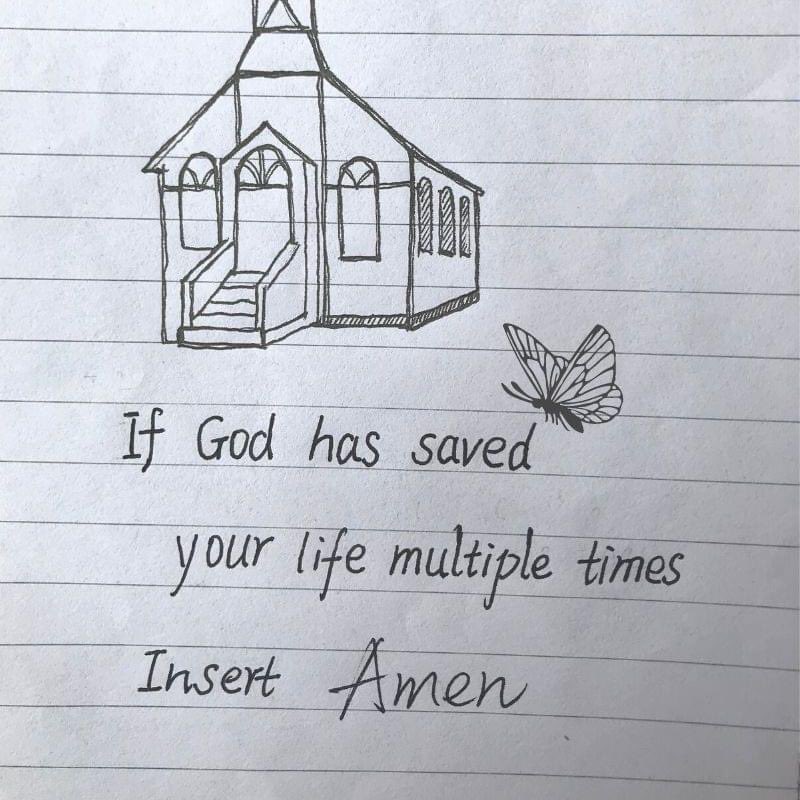 If God has saved
your life multiple times
Insert Amen